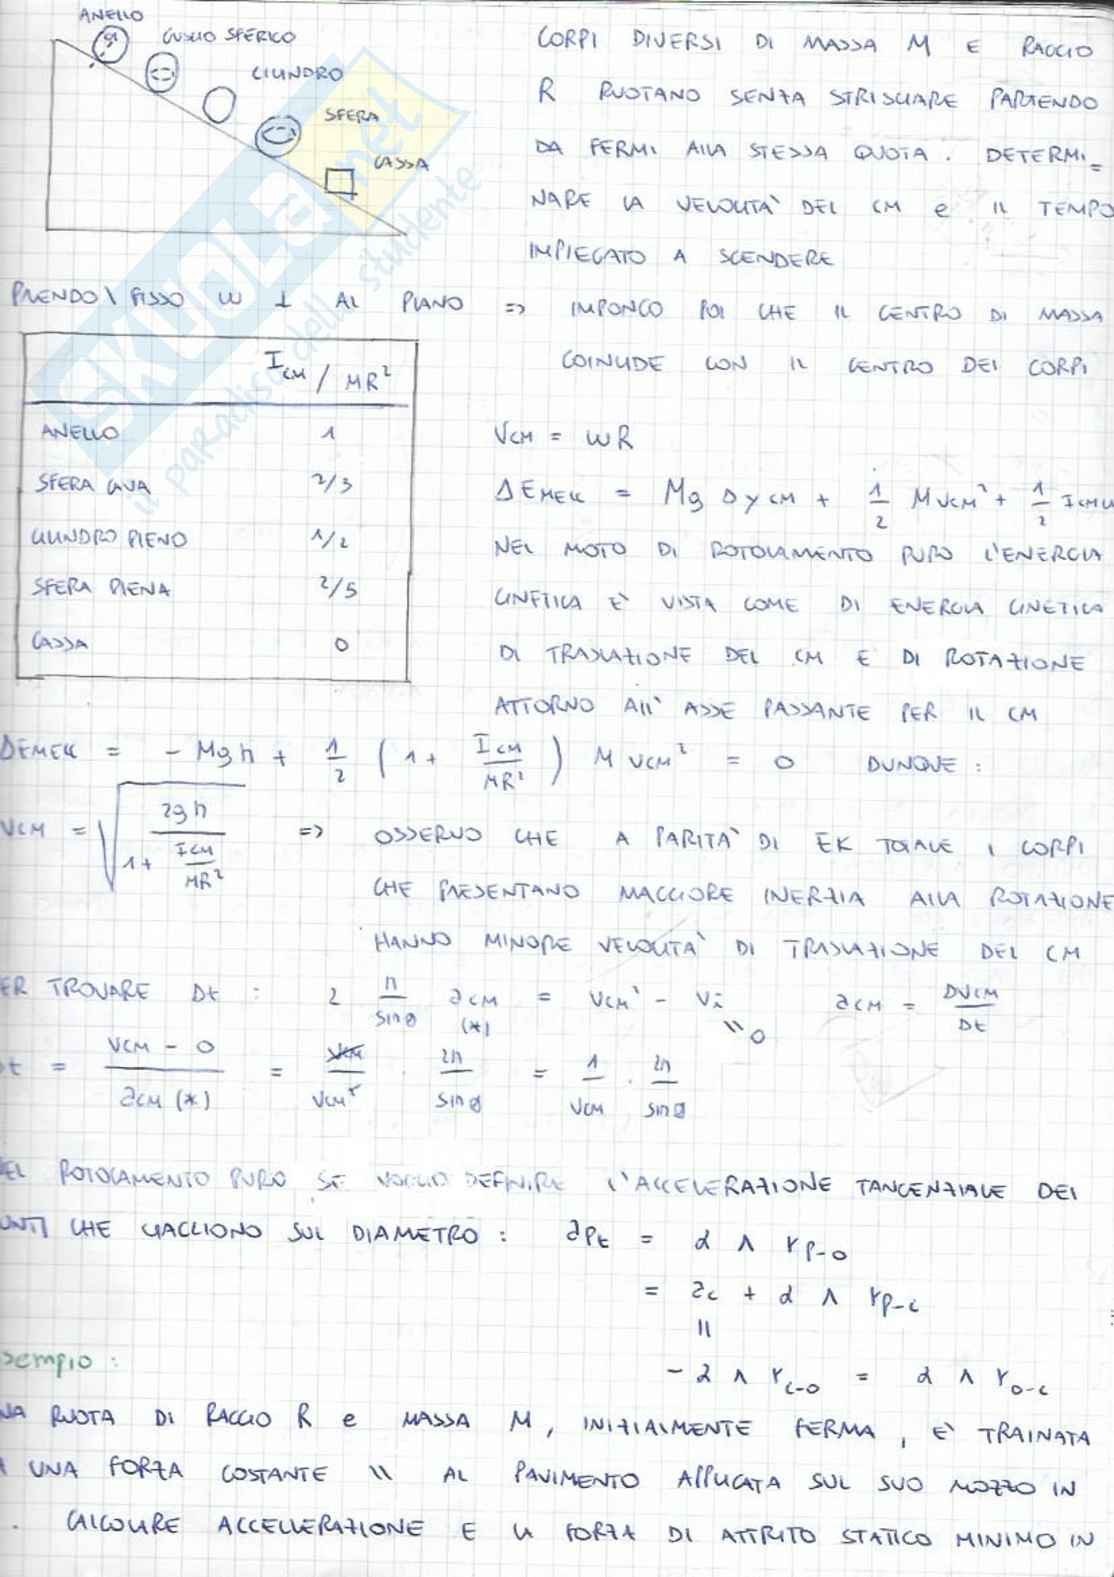 ANELLO
GUSCIO SFERICO
CILINDRO
SFERA
CASSA
CORPI DIVERSI DI MASSA M E RAGGIO
R RUOTANO SENZA STRISCIARE PARTENDO
DA FERMI ALLA STESSA QUOTA. DETERMI=
NARE LA VELOCITÀ DEL CM e IL TEMPO
IMPIEGATO A SCENDERE
PRENDO FISSO W ⊥ AL PIANO => IMPONGO POI CHE IL CENTRO DI MASSA
COINCIDE CON IL CENTRO DEI CORPI
I_CM / MR²
ANELLO 1
SFERA CAVA 2/3
CILINDRO PIENO 1/2
SFERA PIENA 2/5
CASSA 0
V_CM = WR
ΔE_MECC = Mg Δy_CM + 1/2 M V_CM² + 1/2 I_CM W
NEL MOTO DI ROTOLAMENTO PURO L'ENERGIA
CINETICA È VISTA COME DI ENERGIA CINETICA
DI TRASLAZIONE DEL CM E DI ROTAZIONE
ATTORNO ALL' ASSE PASSANTE PER IL CM
ΔE_MECC = - Mgh + 1/2 (1 + I_CM/MR²) M V_CM² = 0 DUNQUE :
V_CM = √(2gh / (1 + I_CM/MR²)) => OSSERVO CHE A PARITÀ DI EK TOTALE I CORPI
CHE PRESENTANO MAGGIORE INERZIA ALLA ROTAZIONE
HANNO MINORE VELOCITÀ DI TRASLAZIONE DEL CM
ER TROVARE Dt : 2 h/sinθ a_CM (*) = V_CM² - V_i² = 0 a_CM = DV_CM/Dt
t = (V_CM - 0)/(a_CM (*)) = V_CM/V_CM² · 2h/sinθ = 1/V_CM · 2h/sinθ
EL ROTOLAMENTO PURO SE VOGLIO DEFINIRE L'ACCELERAZIONE TANGENZIALE DEI
UNTI CHE GIACCIONO SUL DIAMETRO : a_Pt = α ∧ r_P-O
= a_C + α ∧ r_P-C
=
- α ∧ r_C-O = α ∧ r_O-C
sempio :
NA RUOTA DI RAGGIO R e MASSA M, INIZIALMENTE FERMA, È TRAINATA
A UNA FORZA COSTANTE \\ AL PAVIMENTO APPLICATA SUL SUO MOZZO IN
. CALCOLARE ACCELLERAZIONE E LA FORZA DI ATTRITO STATICO MINIMO IN
SKUOLA.net
il paradiso dello studente